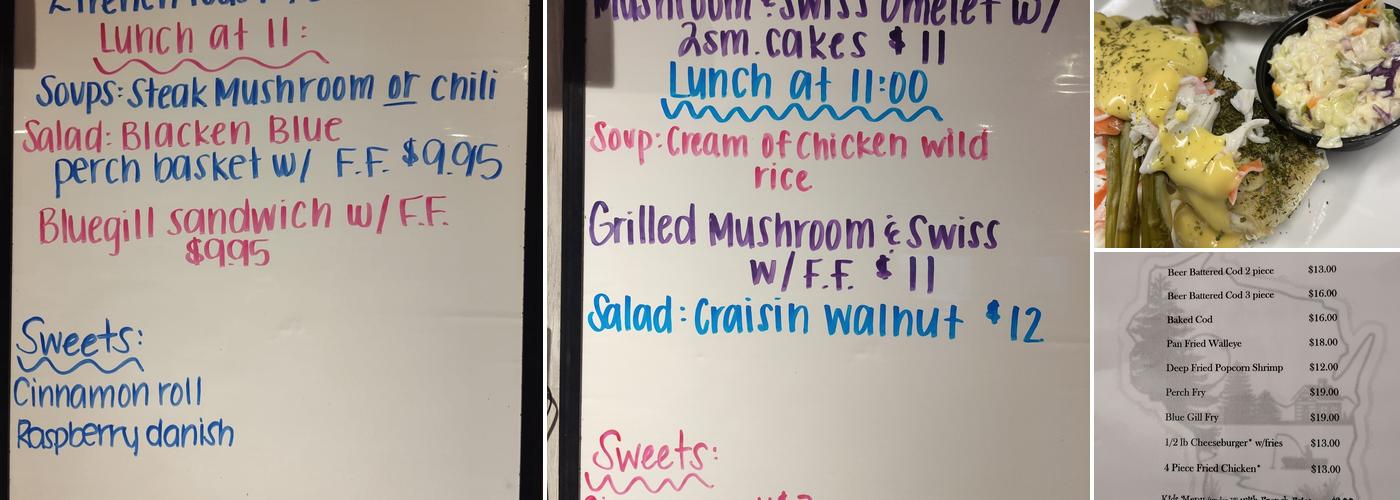 2 French toast
Lunch at 11:
Soups: Steak Mushroom or chili
Salad: Blacken Blue
perch basket w/ F.F. $9.95
Bluegill sandwich w/ F.F.
$9.95
Sweets:
Cinnamon roll
Raspberry danish
Mushroom & Swiss Omelet w/
2sm. cakes $11
Lunch at 11:00
Soup: Cream of Chicken wild
rice
Grilled Mushroom & Swiss
w/ F.F. $11
Salad: Craisin walnut $12
Sweets:
Beer Battered Cod 2 piece $13.00
Beer Battered Cod 3 piece $16.00
Baked Cod $16.00
Pan Fried Walleye $18.00
Deep Fried Popcorn Shrimp $12.00
Perch Fry $19.00
Blue Gill Fry $19.00
1/2 lb Cheeseburger* w/fries $13.00
4 Piece Fried Chicken* $13.00